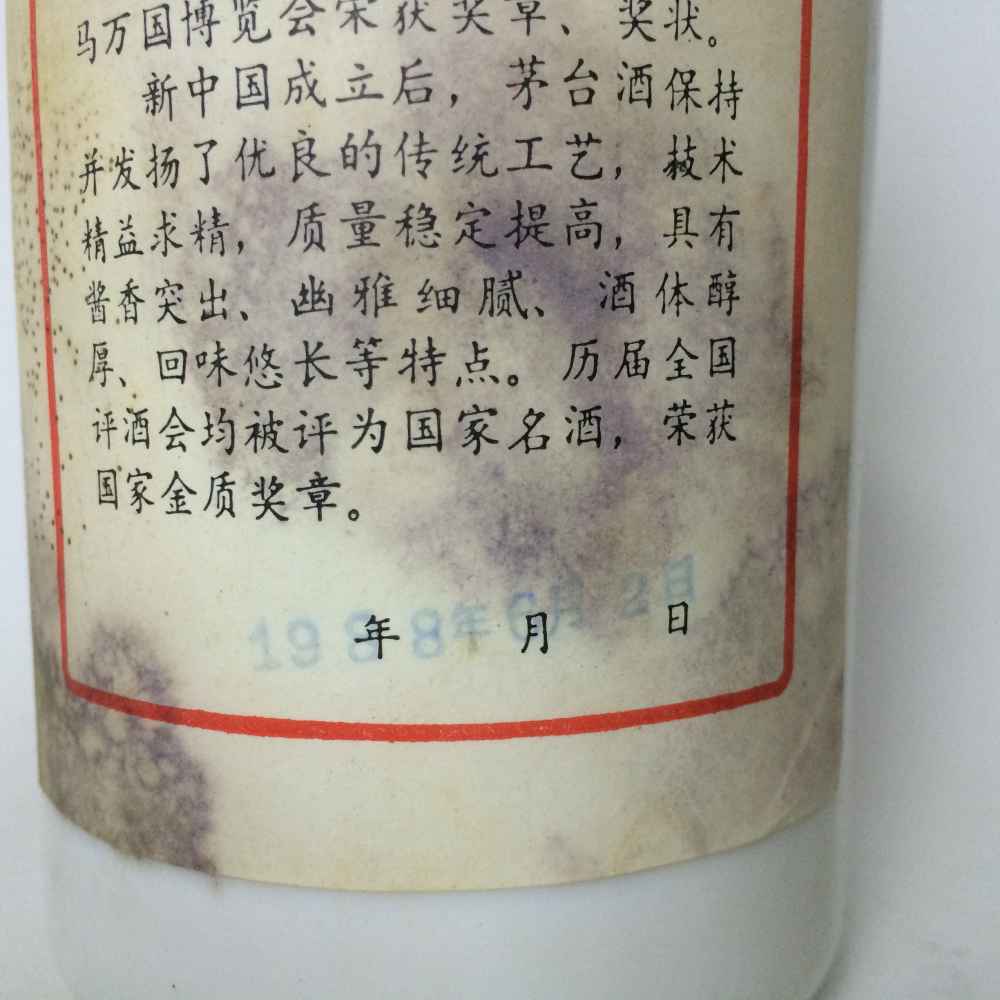 马万国博览会荣获奖章、奖状。
新中国成立后，茅台酒保持
并发扬了优良的传统工艺，技术
精益求精，质量稳定提高，具有
酱香突出、幽雅细腻、酒体醇
厚、回味悠长等特点。历届全国
评酒会均被评为国家名酒，荣获
国家金质奖章。
1988年6月2日
年 月 日